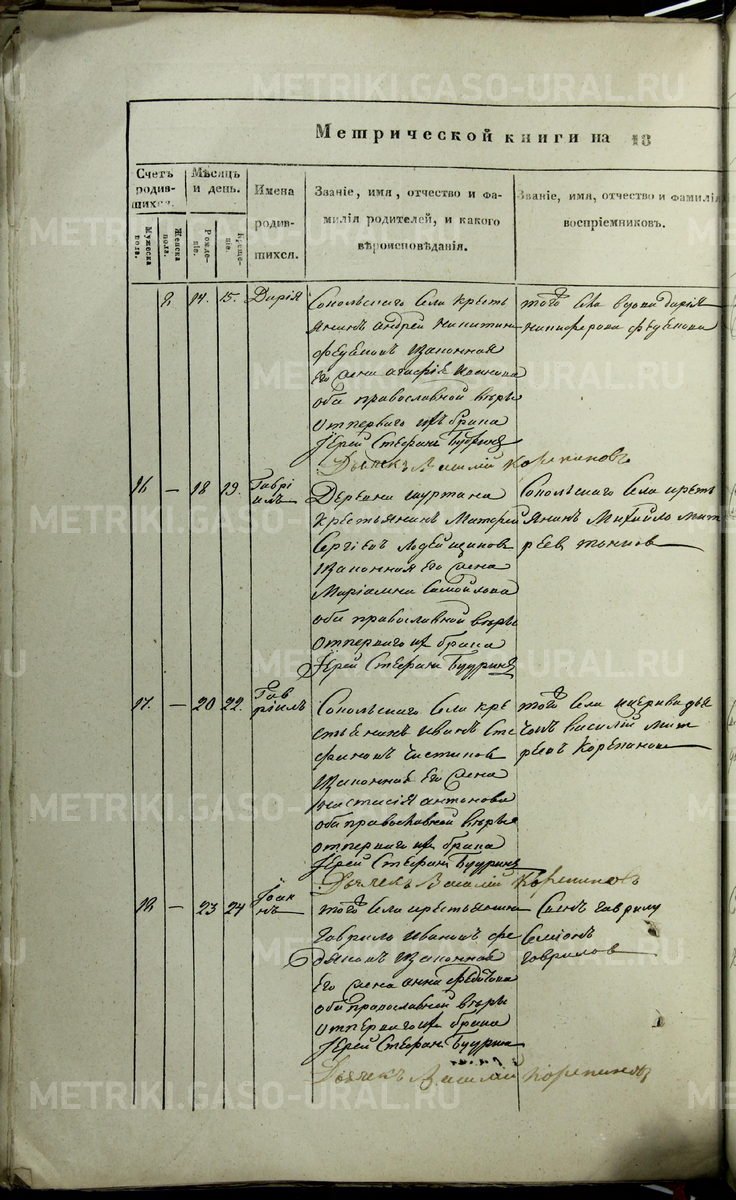 METRIKI.GASO-URAL.RU
Метрической книги на 18
Счетъ родив- шихся.
Мѣсяцъ и день.
Имена родив- шихся.
Званіе, имя, отчество и фа-
милія родителей, и какого
вѣроисповѣданія.
Званіе, имя, отчество и фамилія
воспріемниковъ.
Мужеска пола.
Женска пола.
Рожде- нія.
Креще- нія.
14. 15. Дарія
Сопольскаго Села кресть
янинъ андрей никитинъ
законная
его жена агафія
оба православной вѣры
отперваго ихъ брака
Іерей Стефанъ Будринъ
Дьячекъ Василій Корепановъ
того Села вдова дарія
никифорова
16 — 18 19. Гаврі
илъ
Деревни шуртана
крестьянинъ Матфей
Сергіевъ
законная его жена
Маріамна Самойлова
оба православной вѣры
отперваго ихъ брака
Іерей Стефанъ Будринъ
Сопольскаго Села кресть
янинъ Михайло Мит
ріев
17. — 20 22. Гав
ріилъ
Сопольскаго Села кре
стьенинъ иванъ Сте
фановъ Чистяков
законная его жена
настасія антонова
оба православной вѣры
отперваго ихъ брака
Іерей Стефанъ Будринъ
Дьячекъ Василій Корепановъ
того Села
Василий Мит
ріевъ Корепанов
18 — 23 24 Іоан
нъ
того Села крестьянинъ
Гаврило Ивановъ
законная
его жена анна федотова
оба православной вѣры
отперваго ихъ брака
Іерей Стефанъ Будринъ
Дьячекъ Василій Корепановъ
Сынъ Гаврилу
Семіонъ
Гаврилов